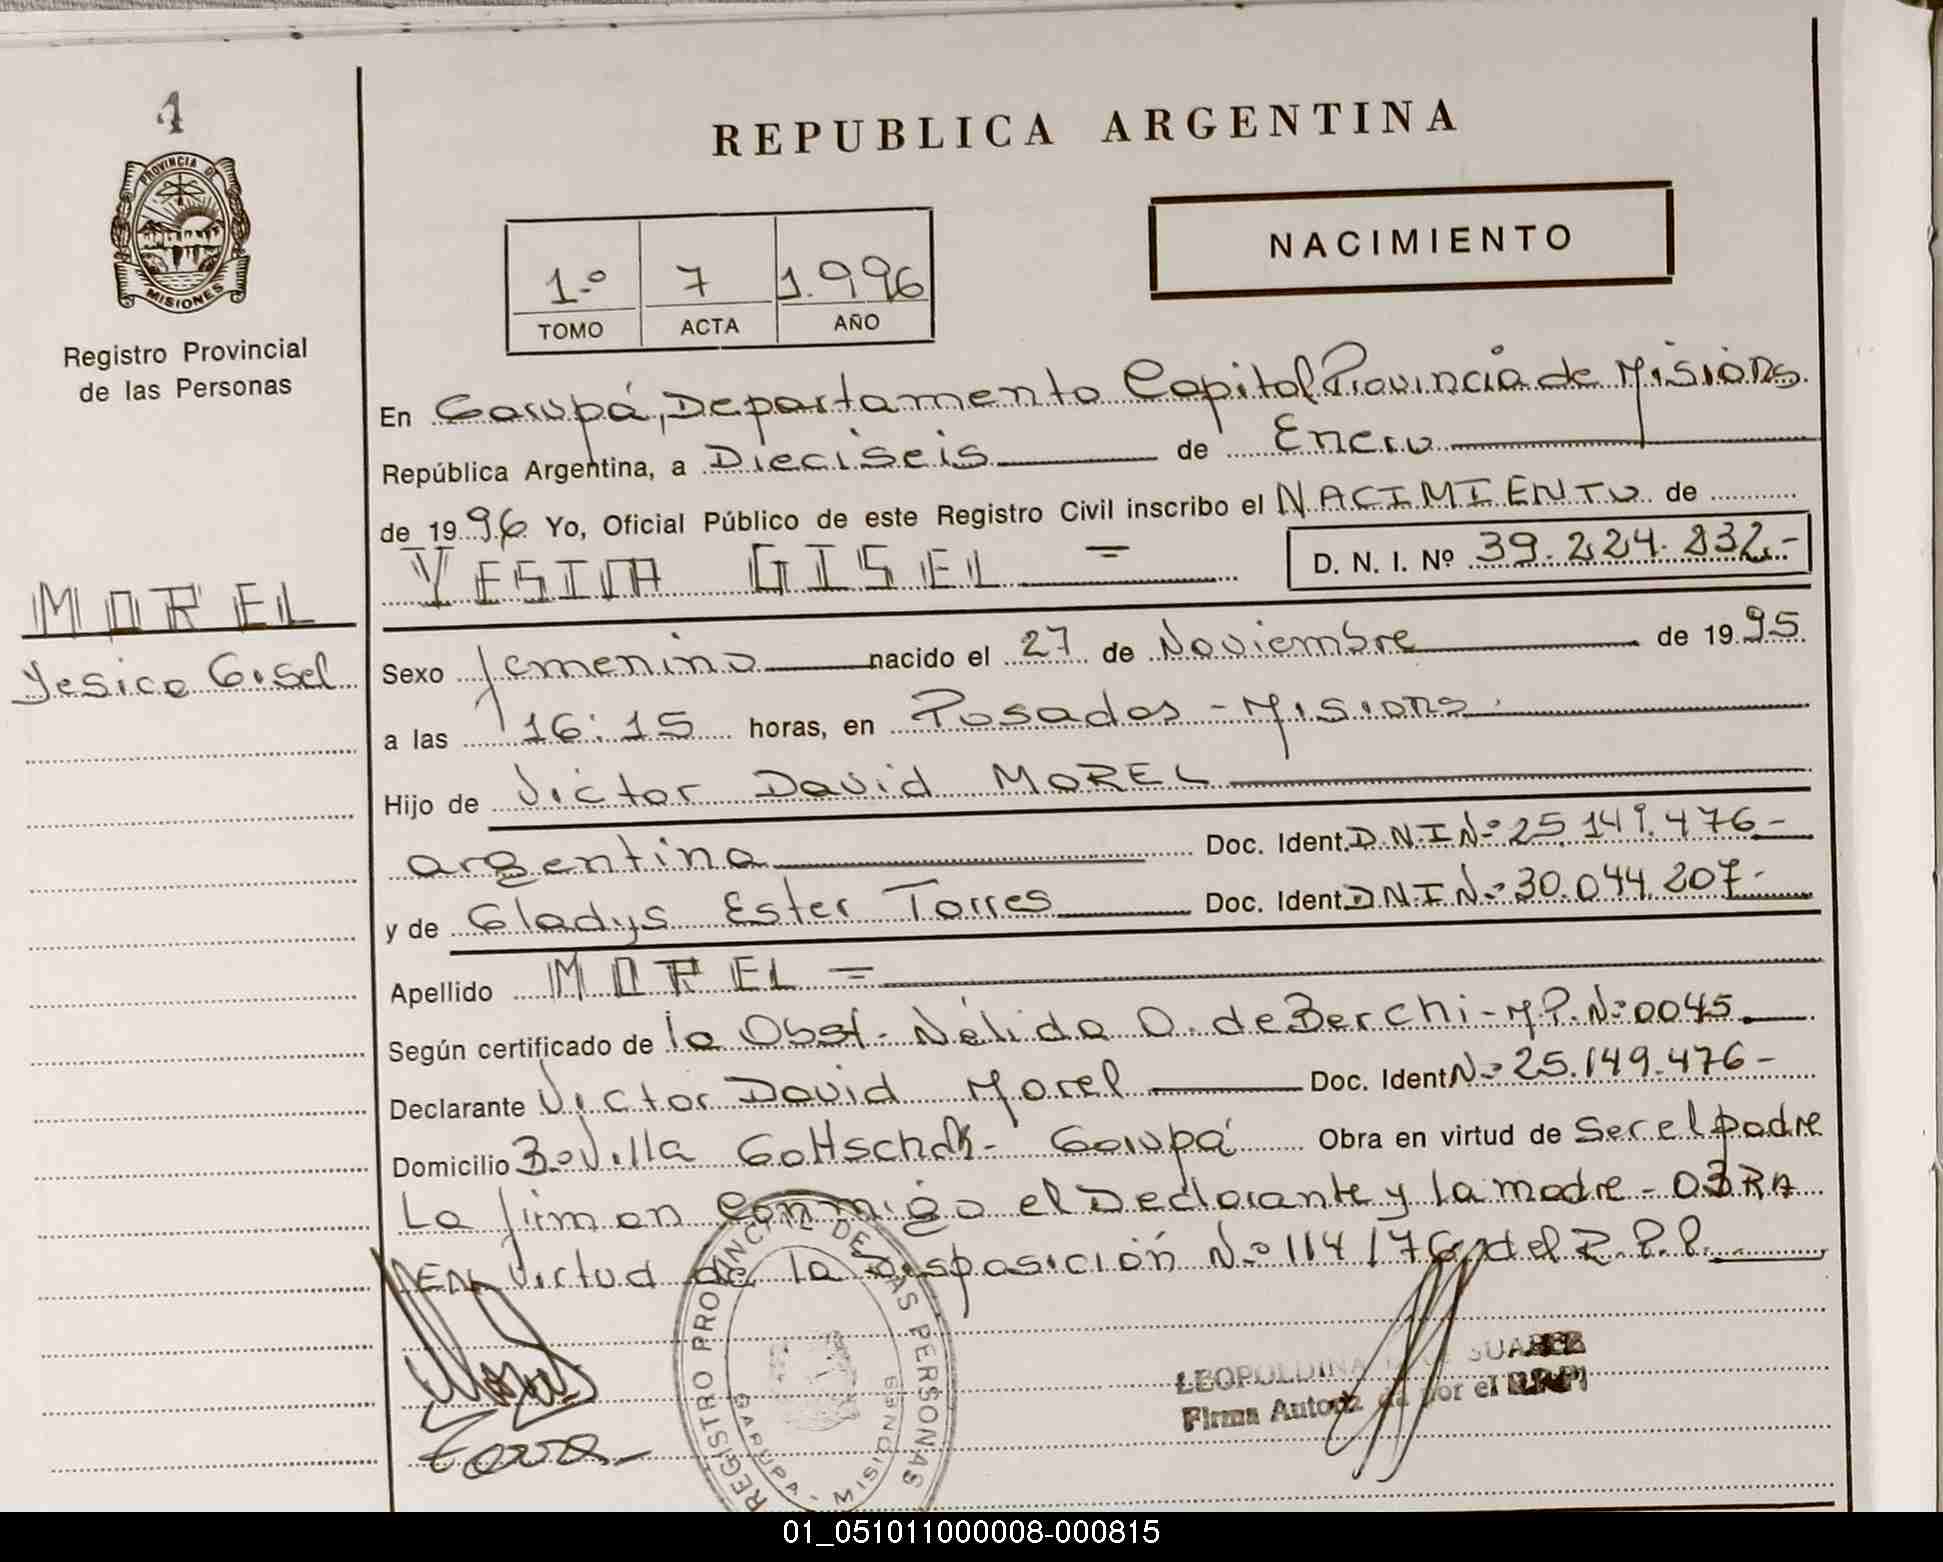 4
PROVINCIA DE
MISIONES
Registro Provincial
de las Personas
REPUBLICA ARGENTINA
NACIMIENTO
1.º 7 1.996
TOMO ACTA AÑO
En Garupá, Departamento Capital Provincia de Misiones.
República Argentina, a Dieciseis de Enero
de 1996 Yo, Oficial Público de este Registro Civil inscribo el NACIMIENTO de
YESICA GISEL = D. N. I. Nº 39.224.832.-
MOREL
Yesica Gisel
Sexo femenino nacido el 27 de Noviembre de 1995
a las 16:15 horas, en Posadas - Misiones
Hijo de Victor David MOREL
argentina Doc. Ident. D.N.I Nº 25.149.476-
y de Gladys Ester Torres Doc. Ident D.N.I Nº 30.044.207-
Apellido MOREL =
Según certificado de la Obst. Nélida O. de Berchi - M.P. Nº 0045
Declarante Victor David Morel Doc. Ident Nº 25.149.476-
Domicilio Bº Villa Gottschalk - Garupá Obra en virtud de Ser el padre
La firman conmigo el Declarante y la madre - OBRA
EN Virtud de la Disposición Nº 114/76 del R.P.P.
REGISTRO PROVINCIAL DE LAS PERSONAS
GARUPA - MISIONES
LEOPOLDINA SUAREZ
Firma Autoriz da por el
01_051011000008-000815